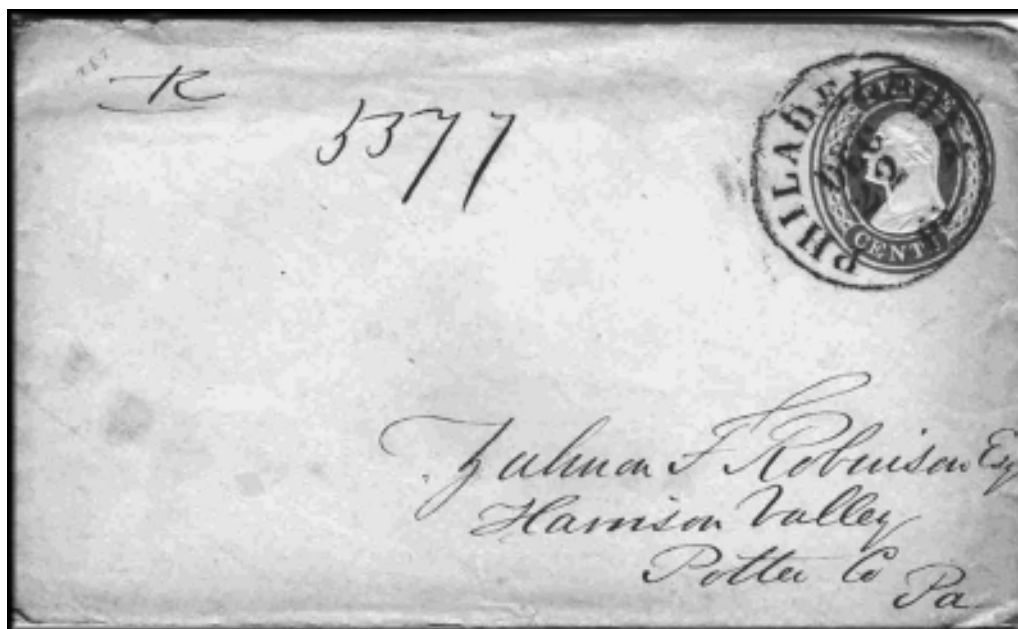 R
5377
PHILADELPHIA
2
CENTS
Zalmon F Robinson Esq
Harrison Valley
Potter Co
Pa